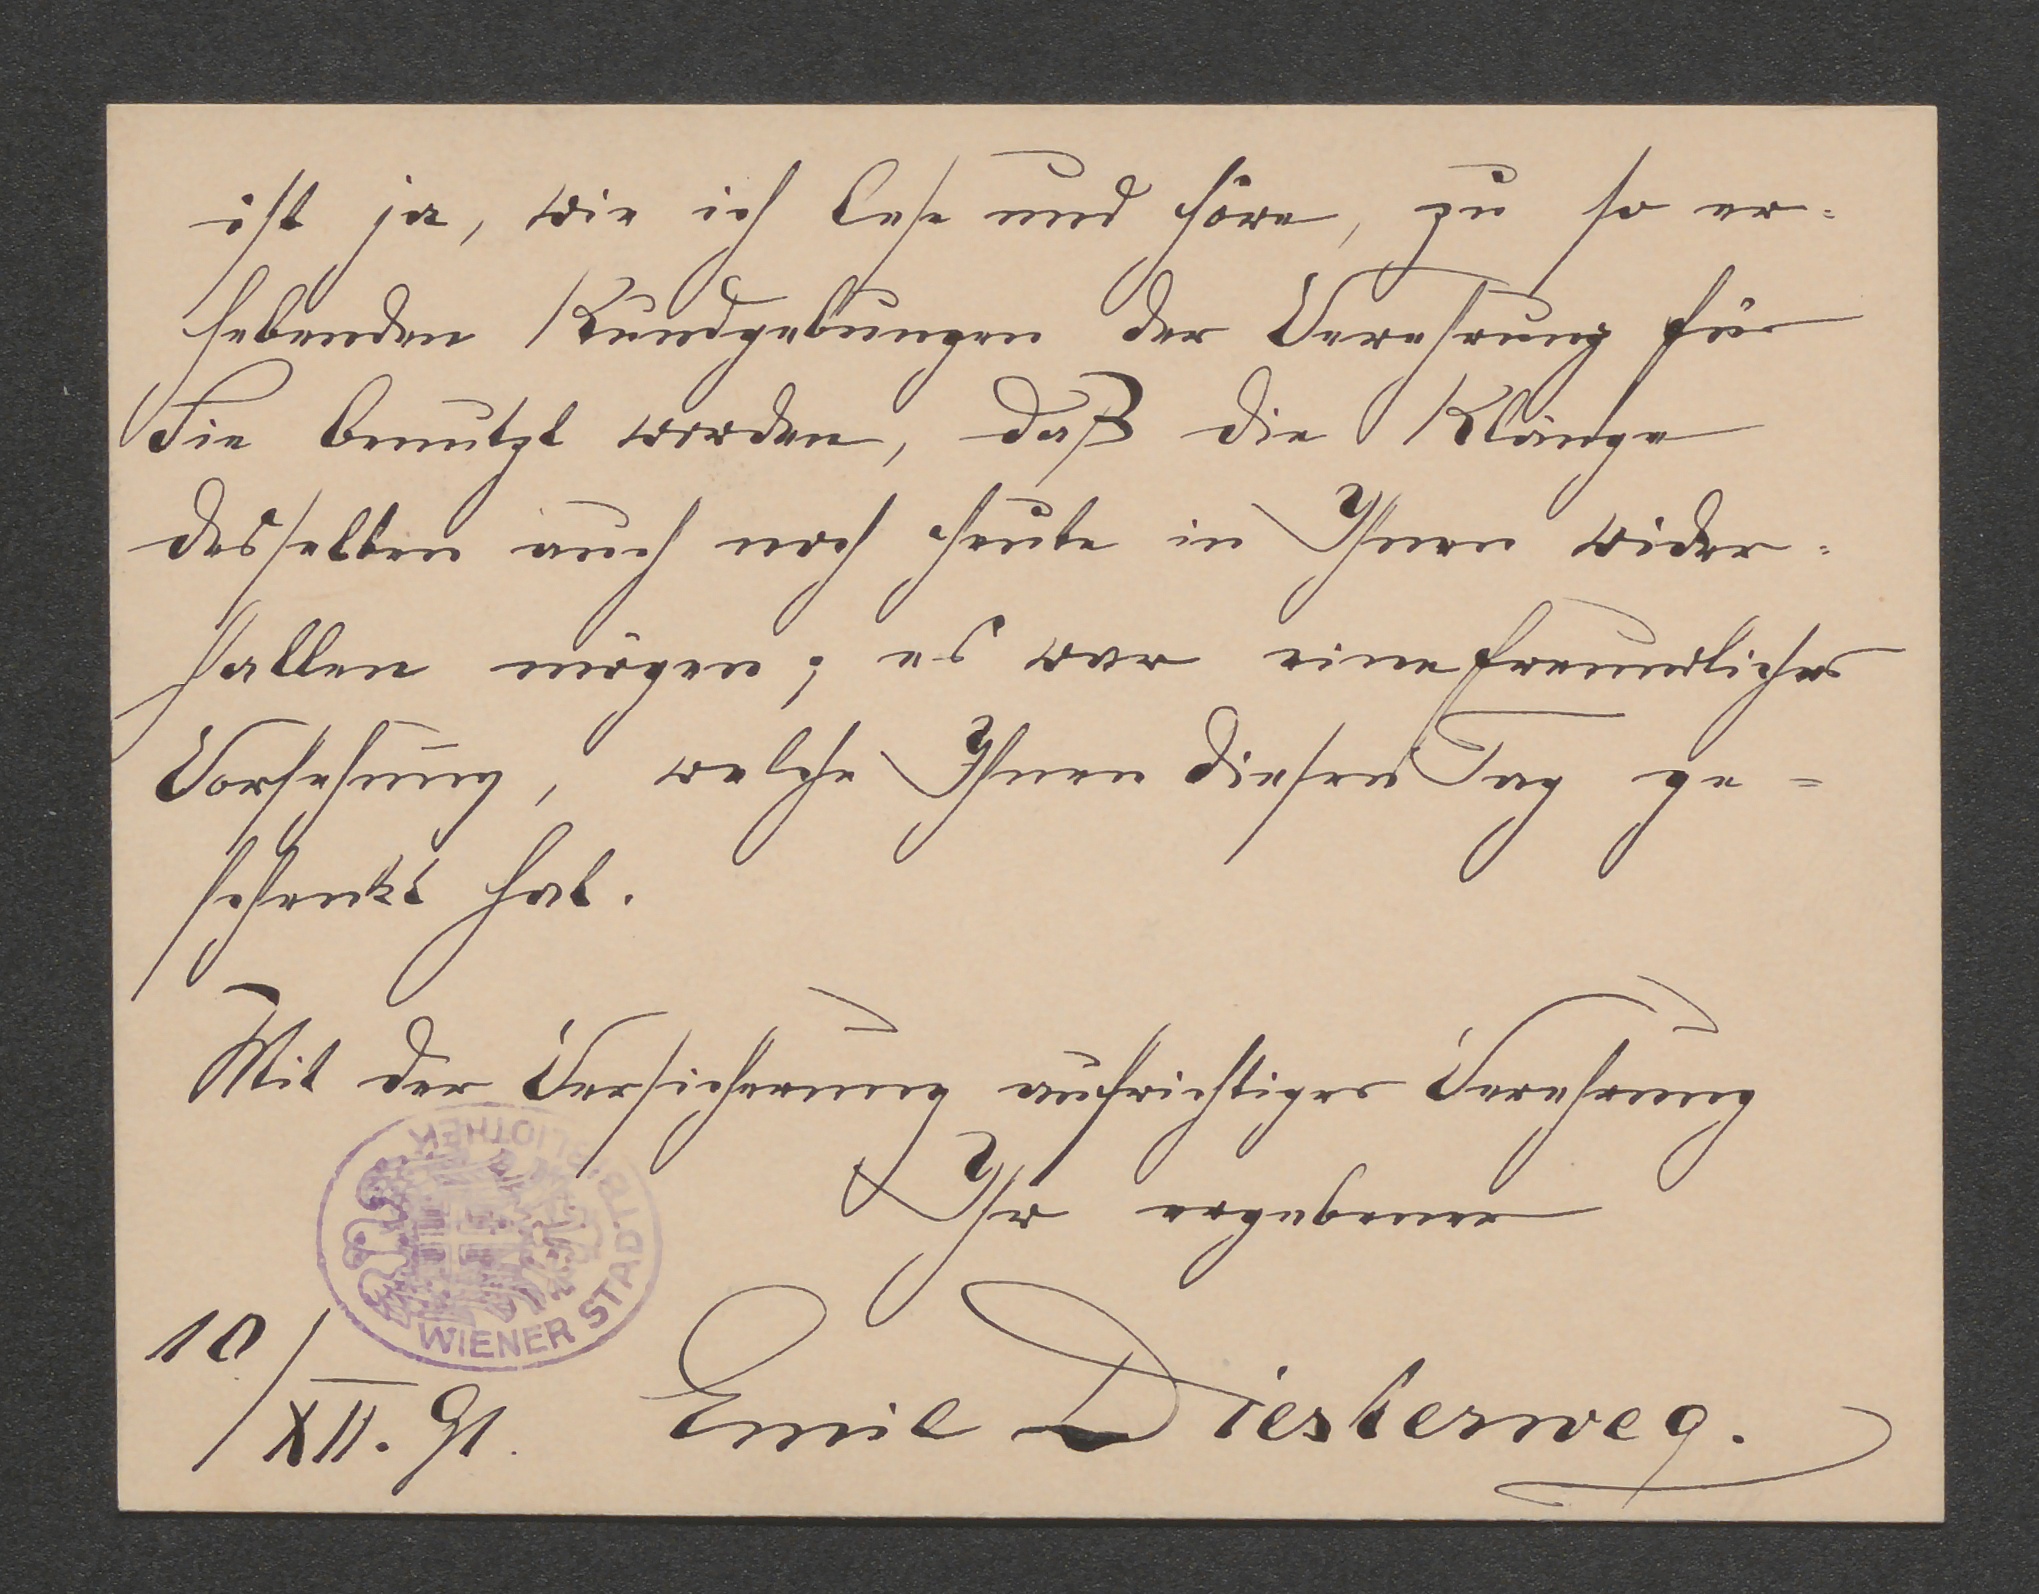 ist ja, wie ich lese und höre, zu so er-
hebenden Kundgebungen der Verehrung für
Sie benutzt worden, daß die Klänge
desselben auch noch heute in Ihnen wider-
hallen mögen; es war eine freundliche
Vorsehung, welche Ihnen diesen Tag ge-
schenkt hat.
Mit der Versicherung aufrichtiger Verehrung
Ihr ergebener
10/XII. 91. Emil Diesterweg.
WIENER STADTBIBLIOTHEK